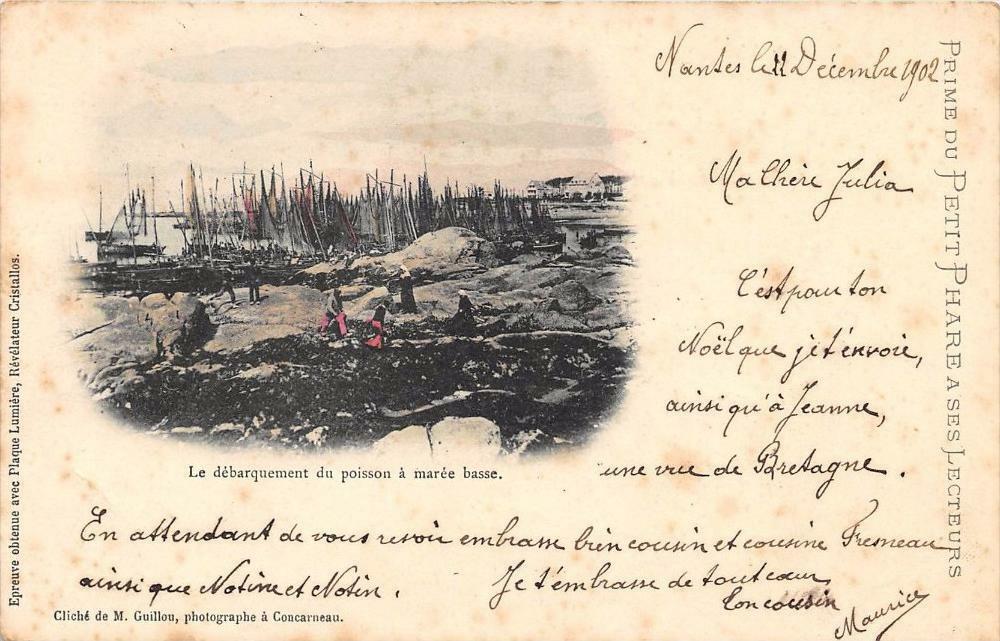 Nantes le 11 Décembre 1902
Ma Chère Julia
C'est pour ton
Noël que je t'envoie,
ainsi qu'à Jeanne,
une vue de Bretagne.
En attendant de vous revoir embrasse bien cousin et cousine Fresneau
ainsi que Notine et Notin. Je t'embrasse de tout cœur
Ton cousin
Maurice
Le débarquement du poisson à marée basse.
Cliché de M. Guillou, photographe à Concarneau.
Epreuve obtenue avec Plaque Lumière, Révélateur Cristallos.
PRIME DU PETIT PHARE A SES LECTEURS